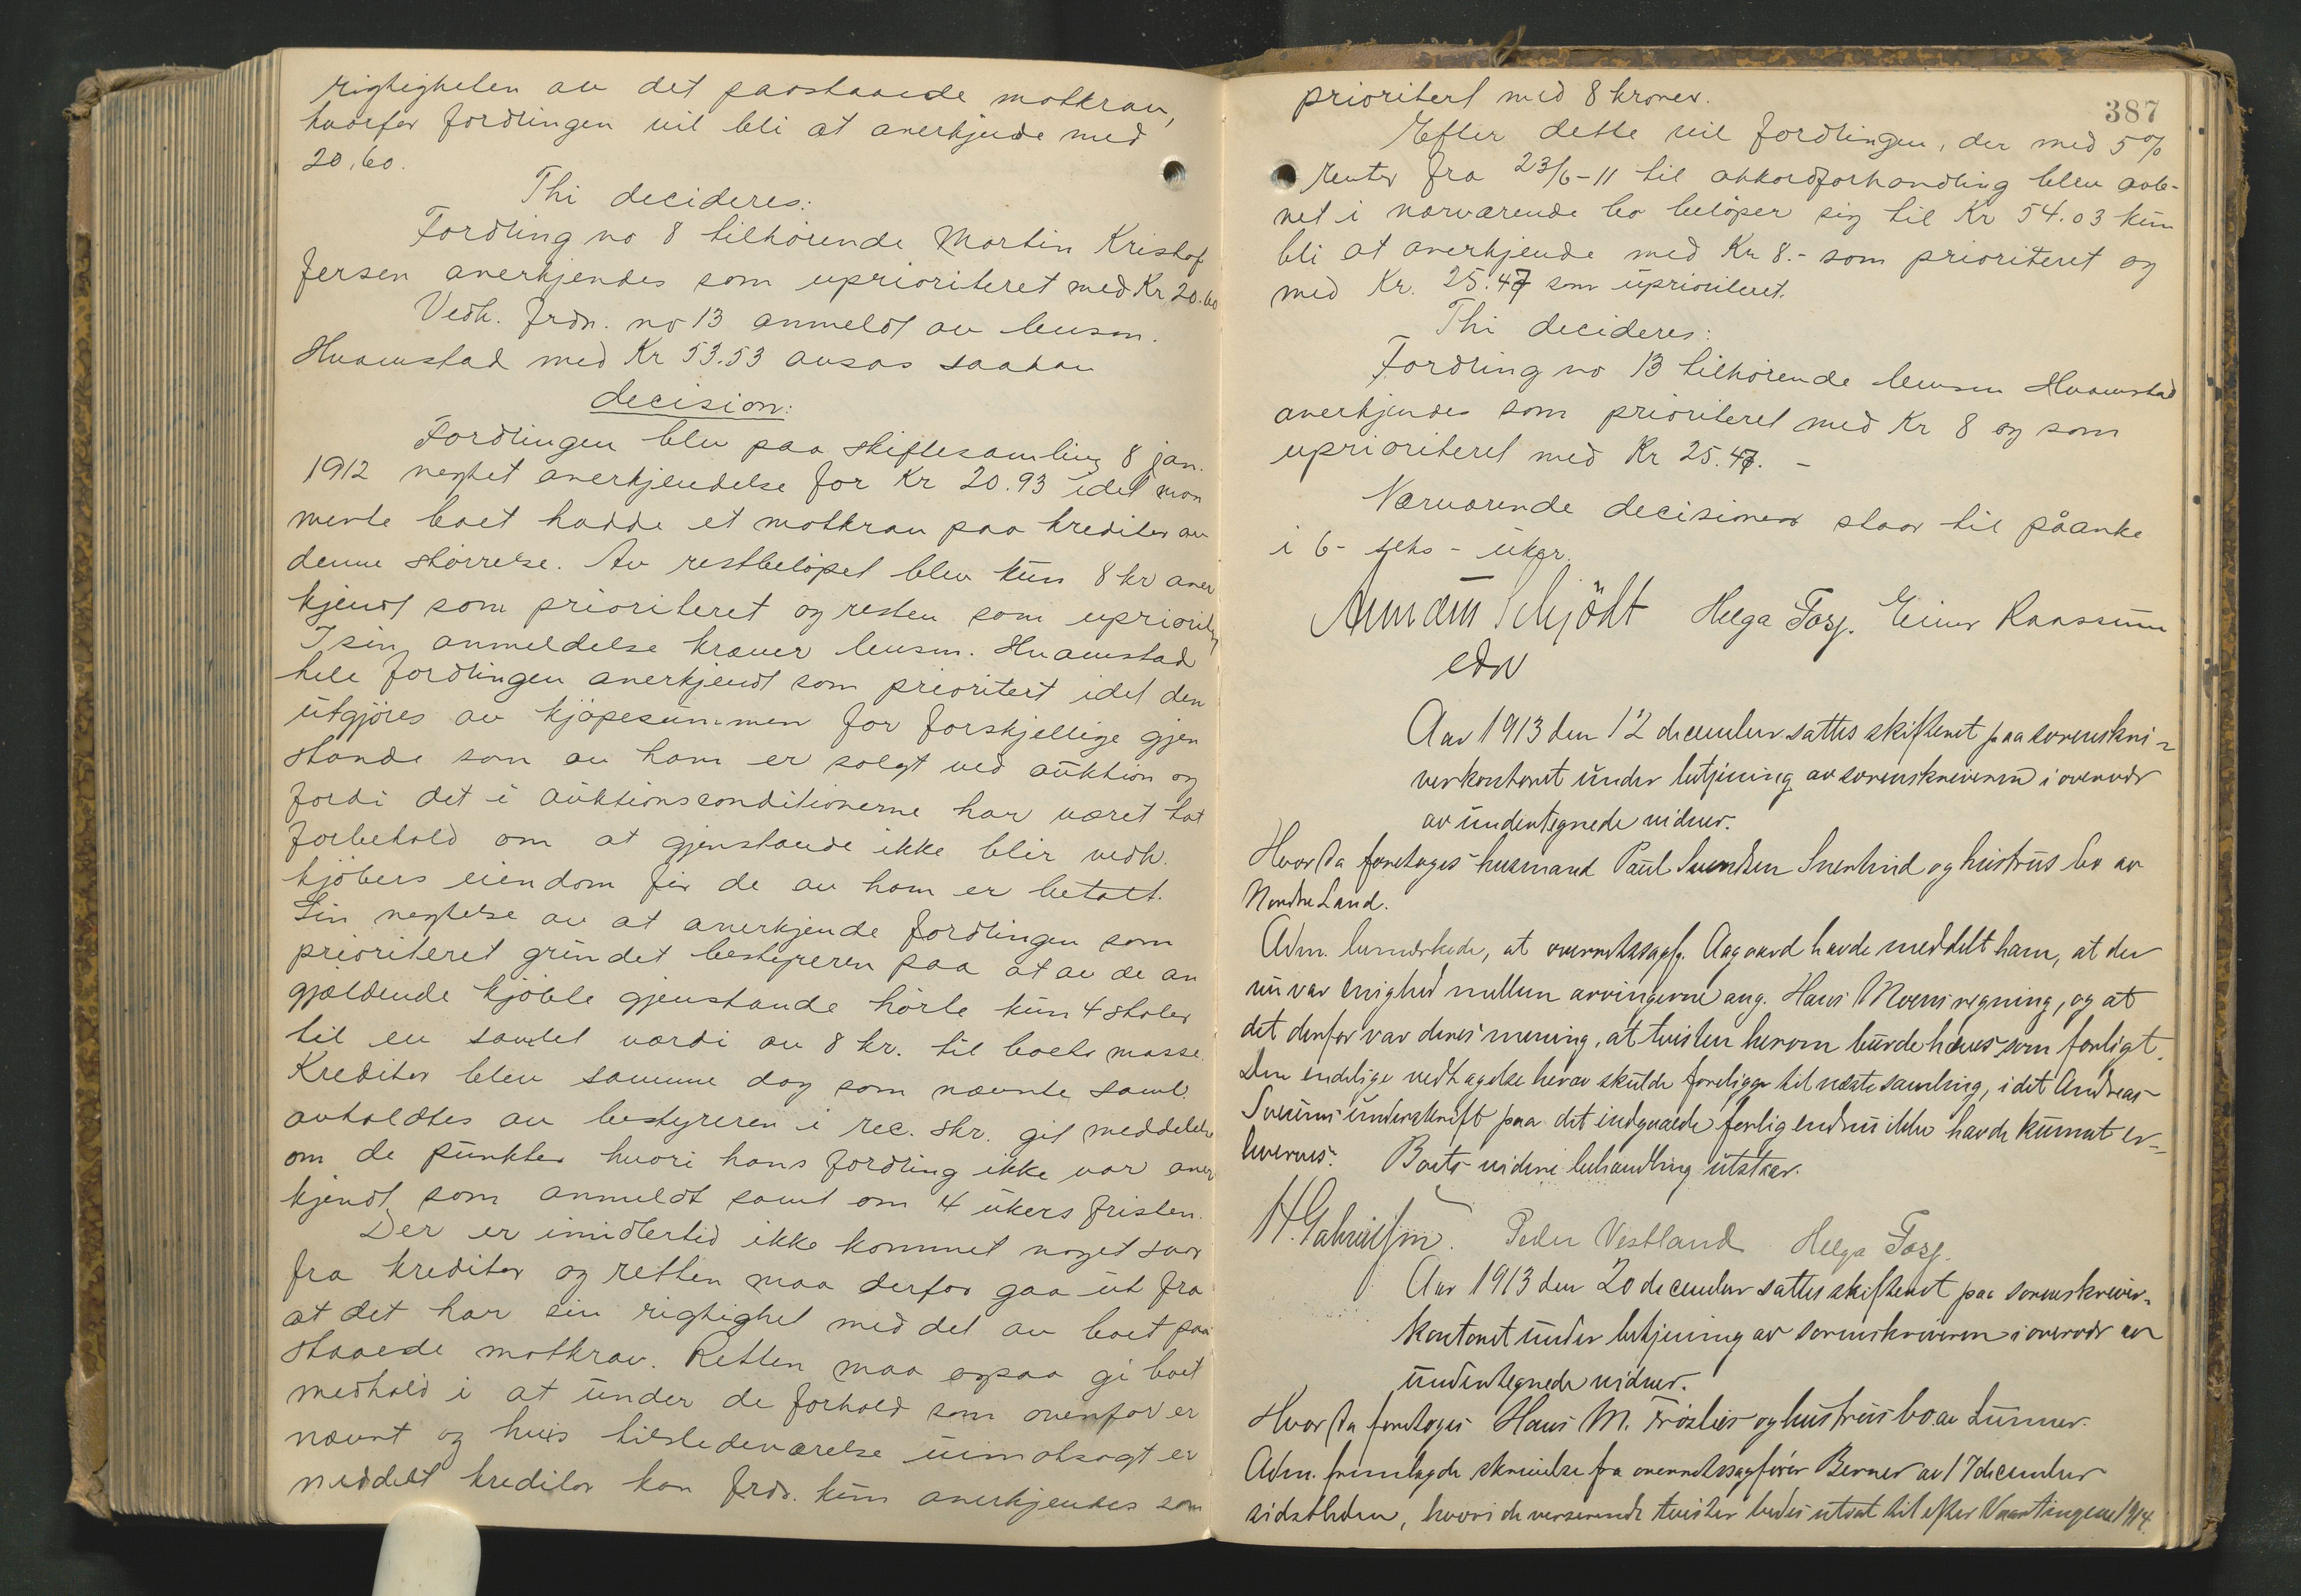 rigtigheten av det paastaaede motkrav,
hvorfor fordringen vil bli at anerkjende med
20,60.
Thi decideres:
Fordring no 8 tilhörende Martin Kristof
fersen anerkjendes som uprioriteret med Kr 20.60
Vedk. frdr. no 13 anmeldt av lensm.
Hvamstad med Kr 53.53 avsas saadan
decision:
Fordringen blev paa skiftesamling 8 jan.
1912 negtet anerkjendelse for Kr 20.93 idet man
mente boet hadde et motkrav paa kreditor av
denne störrelse. Av restbelöpet blev kun 8 kr aner
kjendt som prioriteret og resten som uprioritert
I sin anmeldelse kræver lensm. Hvamstad
hele fordringen anerkjendt som prioritert idet den
utgjöres av kjöpesummen for forskjellige gjen
stande som av ham er solgt ved auktion og
fordi det i auktionsconditionerne har været tat
forbehold om at gjenstande ikke blir vedk.
kjöbers eiendom för de av ham er betalt.
Sin negtelse av at anerkjende fordringen som
prioriteret grundet bestyreren paa at av de an
gjældende kjöbte gjenstande hörte kun 4 stoler
til en samlet værdi av 8 kr. til boets masse.
Kreditor blev samme dag som nævnte saml.
avholdtes av bestyreren i rec. skr. git meddelelse
om de punkter hvori hans fordring ikke var aner
kjendt som anmeldt samt om 4 ukers fristen.
Der er imidlertid ikke kommet noget svar
fra kreditor og retten maa derfor gaa ut fra
at det har sin rigtighet med det av boet paa
staaede motkrav. Retten maa ogsaa gi boet
medhold i at under de forhold som ovenfor er
nævnt og hvis tilstedeværelse uimotsagt er
meddelt kreditor kan frdr. kun anerkjendes som
387
prioritert med 8 kroner.
Efter dette vil fordringen, der med 5%
renter fra 23/6-11 til akkordforhandling blev aab-
net i nærværende bo belöper sig til Kr 54.03 kun
bli at anerkjende med Kr 8.- som prioriteret og
med Kr. 25.47 som uprioriteret.
Thi decideres:
Fordring no 13 tilhörende lensm Hvamstad
anerkjendes som prioriteret med Kr 8 og som
uprioriteret med Kr 25.47. -
Nærværende decisioner staar til påanke
i 6 - seks - uker.
Annæus Schjödt Helga Fosj. Einar Raassum
edv
Aar 1913 den 12 december sattes skifteret paa sorenskri-
verkontoret under betjening av sorenskriveren i overvær
av undertegnede vidner.
Hvor da foretoges husmand Paul Svendsen Svenlund og hustrus bo av
Nordre Land.
Adm. bemærkede, at overretssagf. Aagaard havde meddelt ham, at der
nu var enighed mellem arvingerne ang. Hans Moens regning, og at
det derfor var deres mening, at tvisten herom burde hæves som forligt.
Den endelige vedtagelse herav skulde foreligge til næste samling, idet Andreas
Sveums underskrift paa det indgaaede forlig endnu ikke havde kunnet er-
hverves. Boets videre behandling utstaar.
H. Gabrielsen. Peder Vestland Helga Fosj.
Aar 1913 den 20 december sattes skifteret paa sorenskriver-
kontoret under betjening av sorenskriveren i overvær av
undertegnede vidner.
Hvor da foretoges Hans M. Fröslies og hustrus bo av Lunner.
Adm. fremlagde skrivelse fra overretssagförer Berner av 17 december
sidstleden, hvori de verserende tvister bedes utsat til efter Vaartingene 1914.